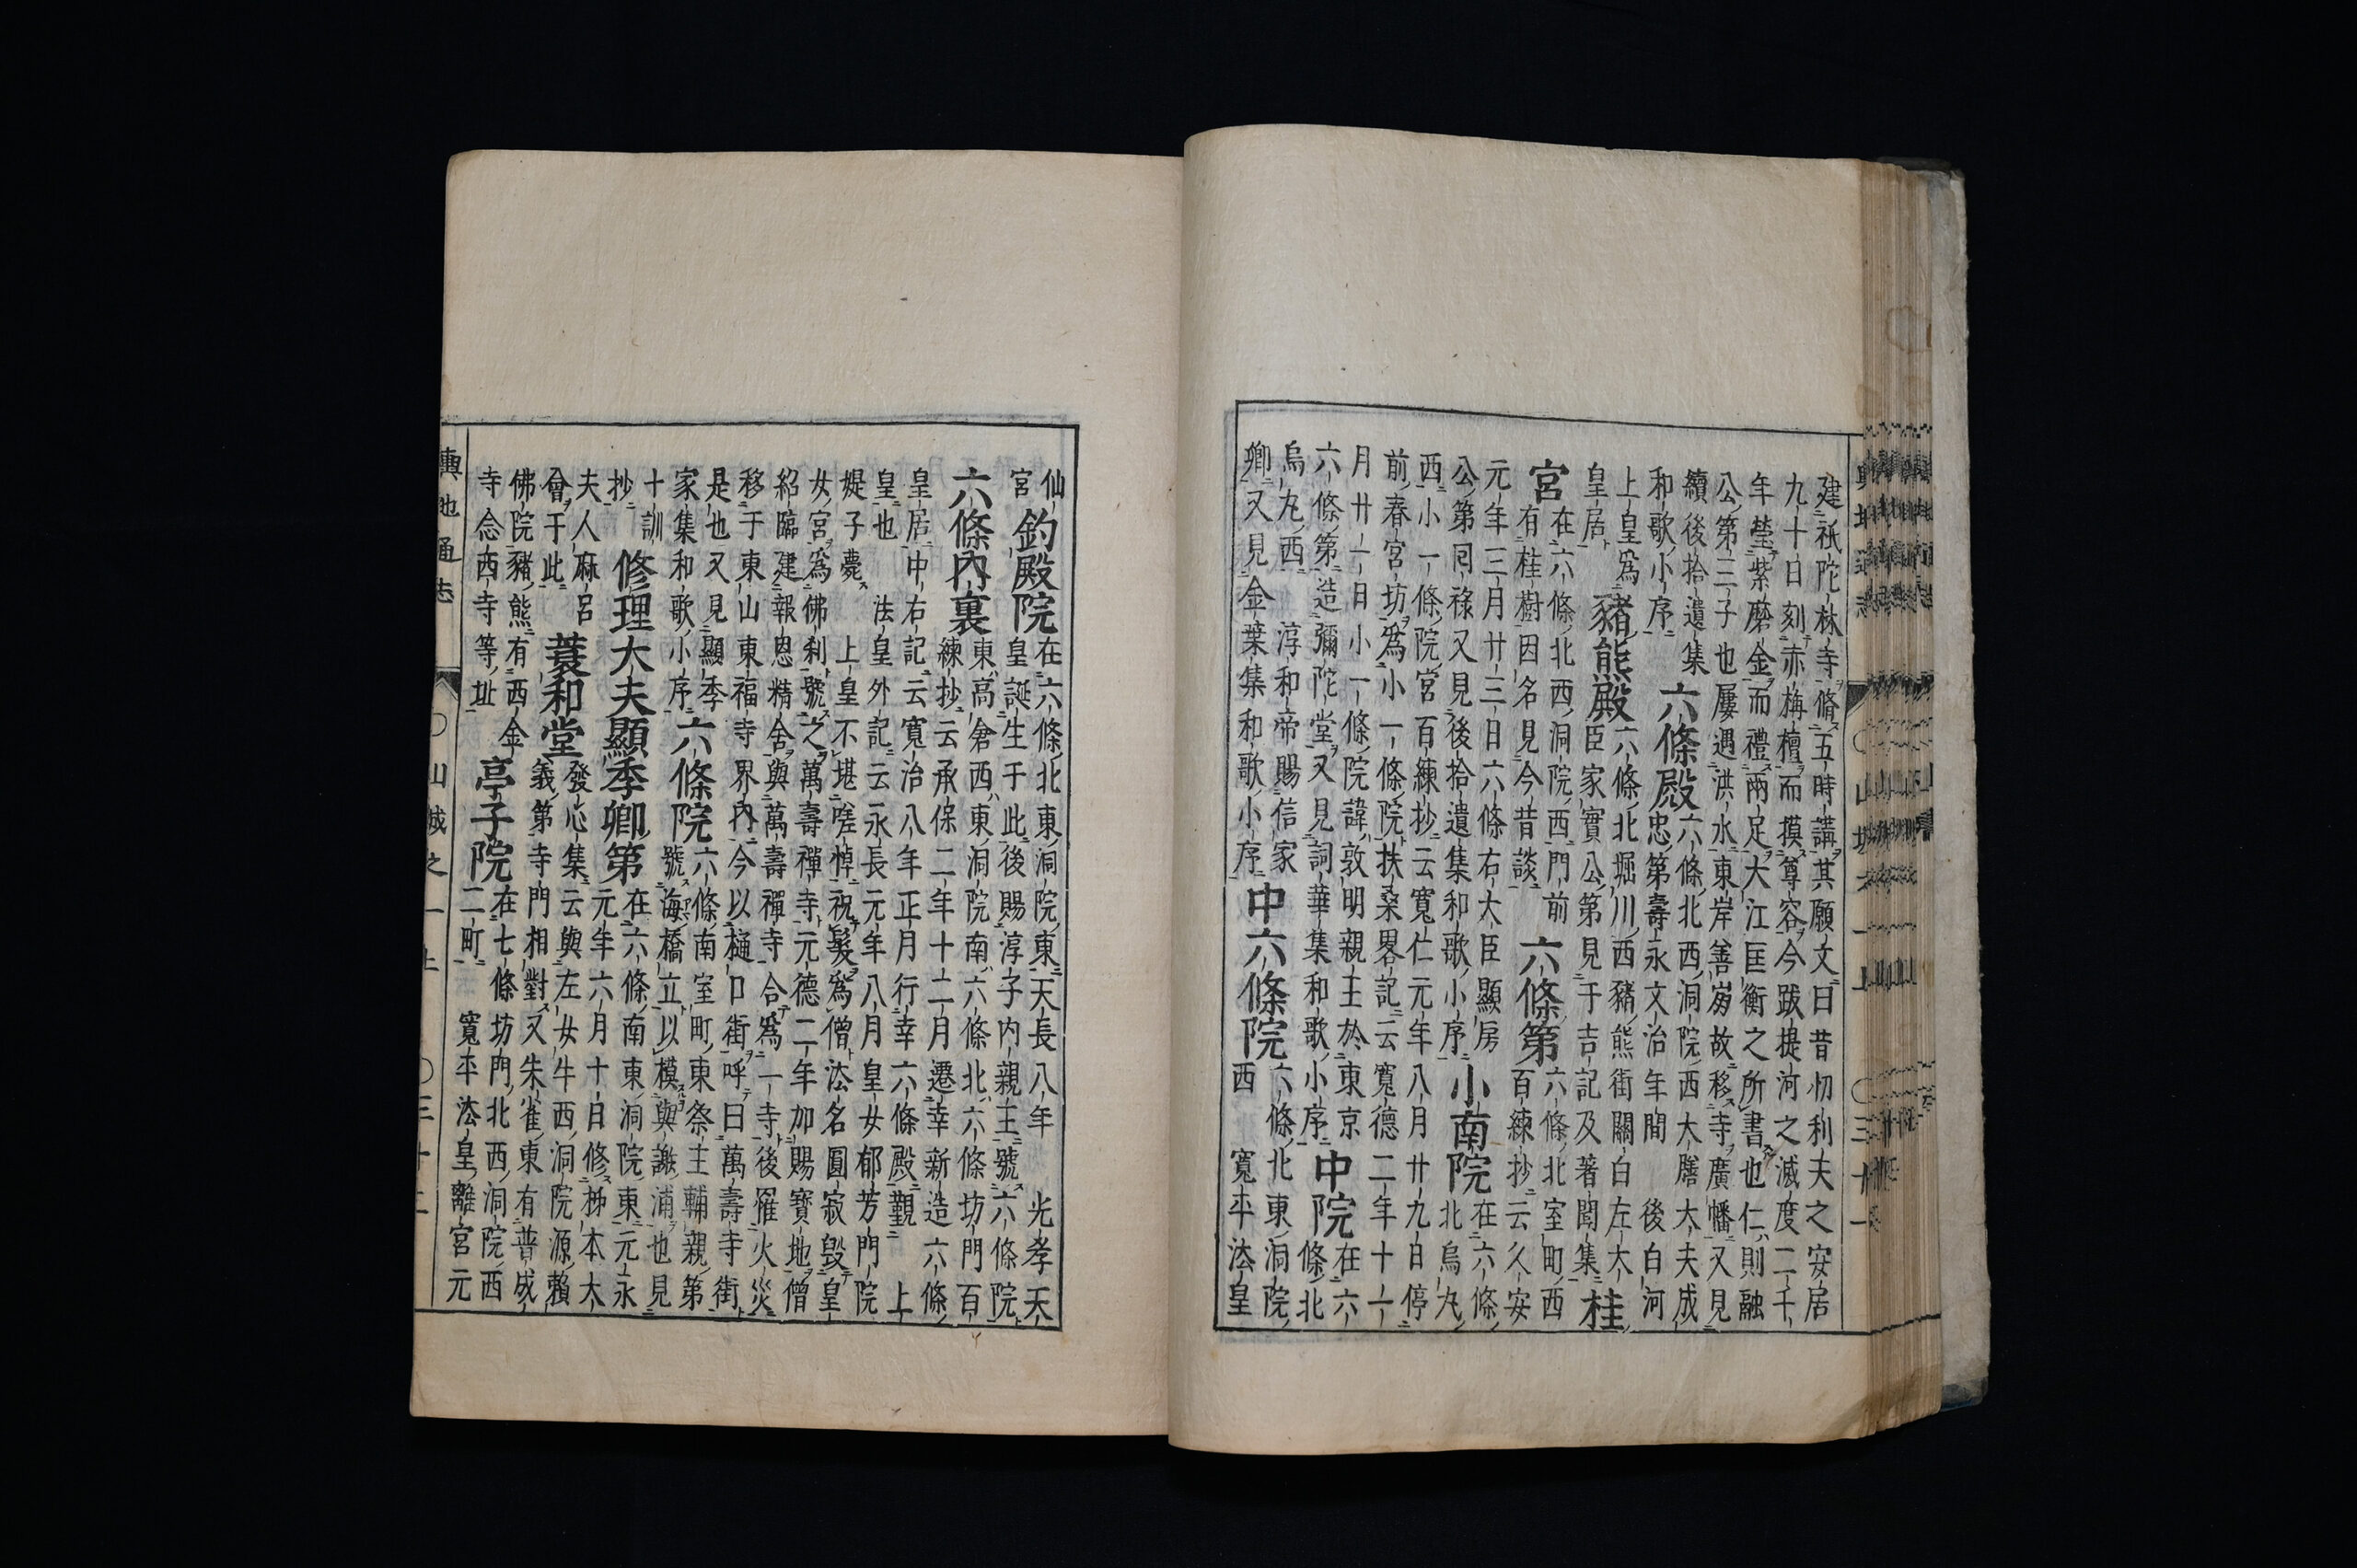 建祇陀林寺脩五時講其願文曰昔忉利夫之安居
九十日刻赤栴檀而摸尊容今跋提河之滅度二千
年瑩紫磨金而禮兩足大江匡衡之所書也仁則融
公第三子也屢遇洪水東岸善崩故移寺廣幡又見
續後拾遺集
和歌小序
六條殿
六條北西洞院西大膳大夫成
忠第壽永文治年間後白河
上皇爲
皇居
豬熊殿
六條北堀川西豬熊街關白左大
臣家實公第見于吉記及著聞集
桂
宮
在六條北西洞院西西門前
有桂樹因名見今昔談
六條第
六條北室町西
百練抄云久安
元年三月廿三日六條右大臣顯房
公第罔祿又見後拾遺集和歌小序
小南院
在六條
北烏丸
西小一條院宮百練抄云寬仁元年八月廿九日停
前春宮坊爲小一條院扶桑畧記云寬德二年十一
月廿一日小一條院諱敦明親王於東京
六條第造彌陀堂又見詞華集和歌小序
中院
在六
條北
烏丸西淳和帝賜信家
卿又見金葉集和歌小序
中六條院
六條北東洞院
西寬平法皇
仙
宮
釣殿院
在六條北東洞院東天長八年光孝天
皇誕生于此後賜淳子内親王號六條院
六條内裏
東高倉西東洞院南六條北六條坊門百
練抄云承保二年十二月遷幸新造六條
皇居中右記云寬治八年正月行幸六條殿覲上
皇也法皇外記云永長元年八月皇女郁芳門院
媞子薨上皇不堪嗟悼祝髮爲僧法名圓寂毁皇
女宮爲佛刹號之萬壽禪寺元德二年加賜寶地僧
紹臨建報恩精舍與萬壽禪寺合爲一寺後罹火災
移于東山東福寺界内今以樋口街呼曰萬壽寺街
是也又見顯季
家集和歌小序
六條院
六條南室町東祭主輔親第
號海橋立以模與謝浦也見
十訓
抄
修理大夫顯季卿第
在六條南東洞院東元永
元年六月十日修柹本大
夫人麻呂
會于此
蓑和堂
發心集云與左女牛西洞院源賴
義第寺門相對又朱雀東有普成
佛院豬熊有西金
寺念西寺等址
亭子院
在七條坊門北西洞院西
二町寬平法皇離宮元
輿地通志
〇山城之一上
〇三十二